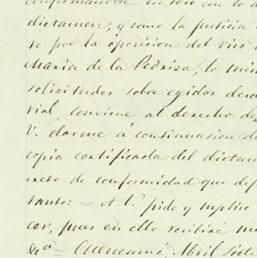 conformandose en todo con lo d
dictamen; y como la justicia
so por la oposicion del rico
Maria de la Pedriza, lo mism
solicitudes sobre egidos des
rial, conviene al derecho de
V. darme á continuacion de
copia certificada del dictam
exto de conformidad que def
tanto: — A V. pido y suplico
cor, pues en ello recibiré m
&ca — Cuencamé, Abril siete